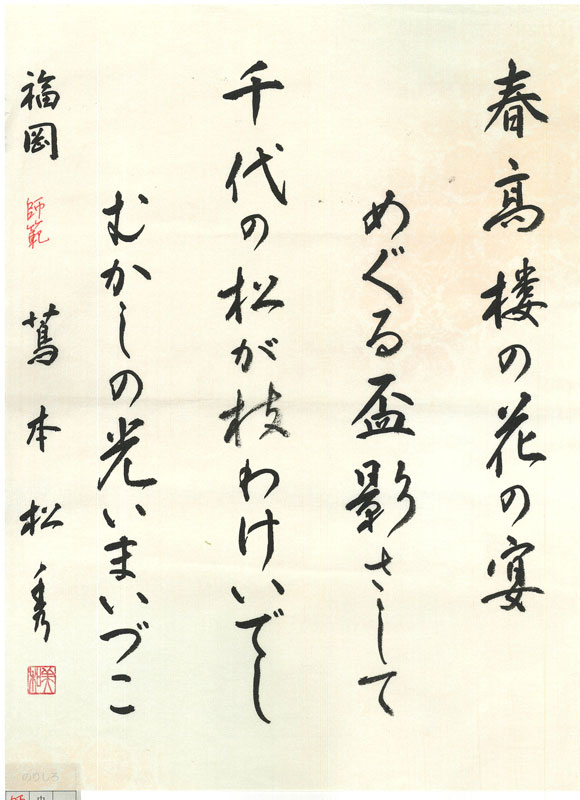 春高楼の花の宴
めぐる盃影さして
千代の松が枝わけいでし
むかしの光いまいづこ
福岡 師範 蔦本松秀
のりしろ